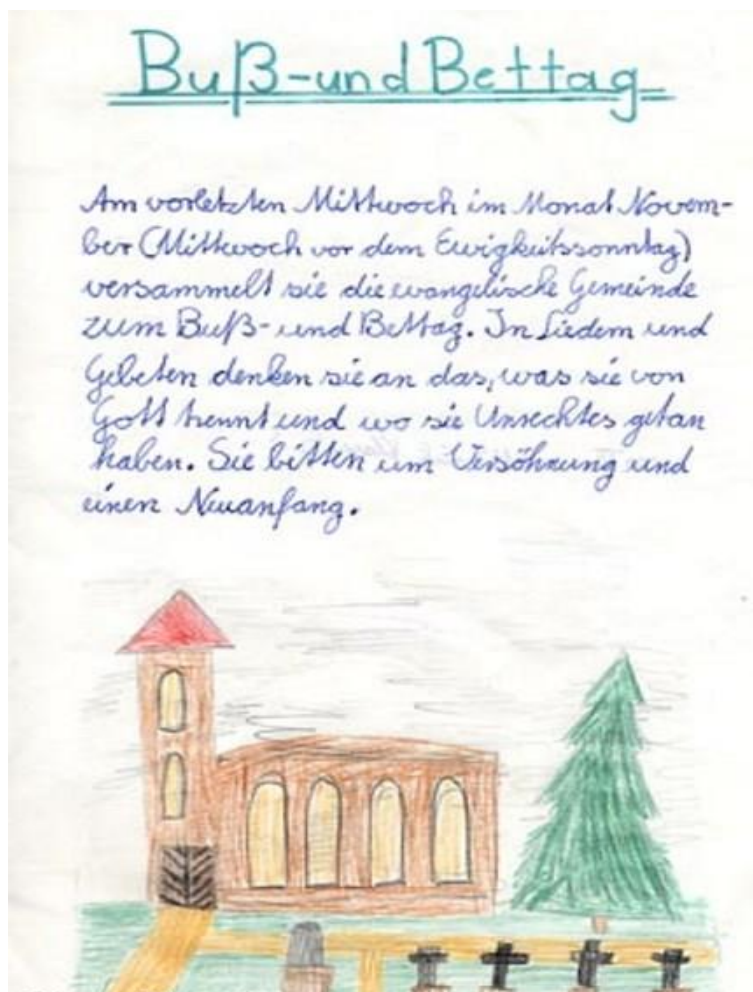 Buß-und Bettag
Am vorletzten Mittwoch im Monat Novem-
ber (Mittwoch vor dem Ewigkeitssonntag)
versammelt sie die evangelische Gemeinde
zum Buß- und Bettag. In Liedern und
Gebeten denken sie an das, was sie von
Gott trennt und wo sie Unrechtes getan
haben. Sie bitten um Versöhnung und
einen Neuanfang.